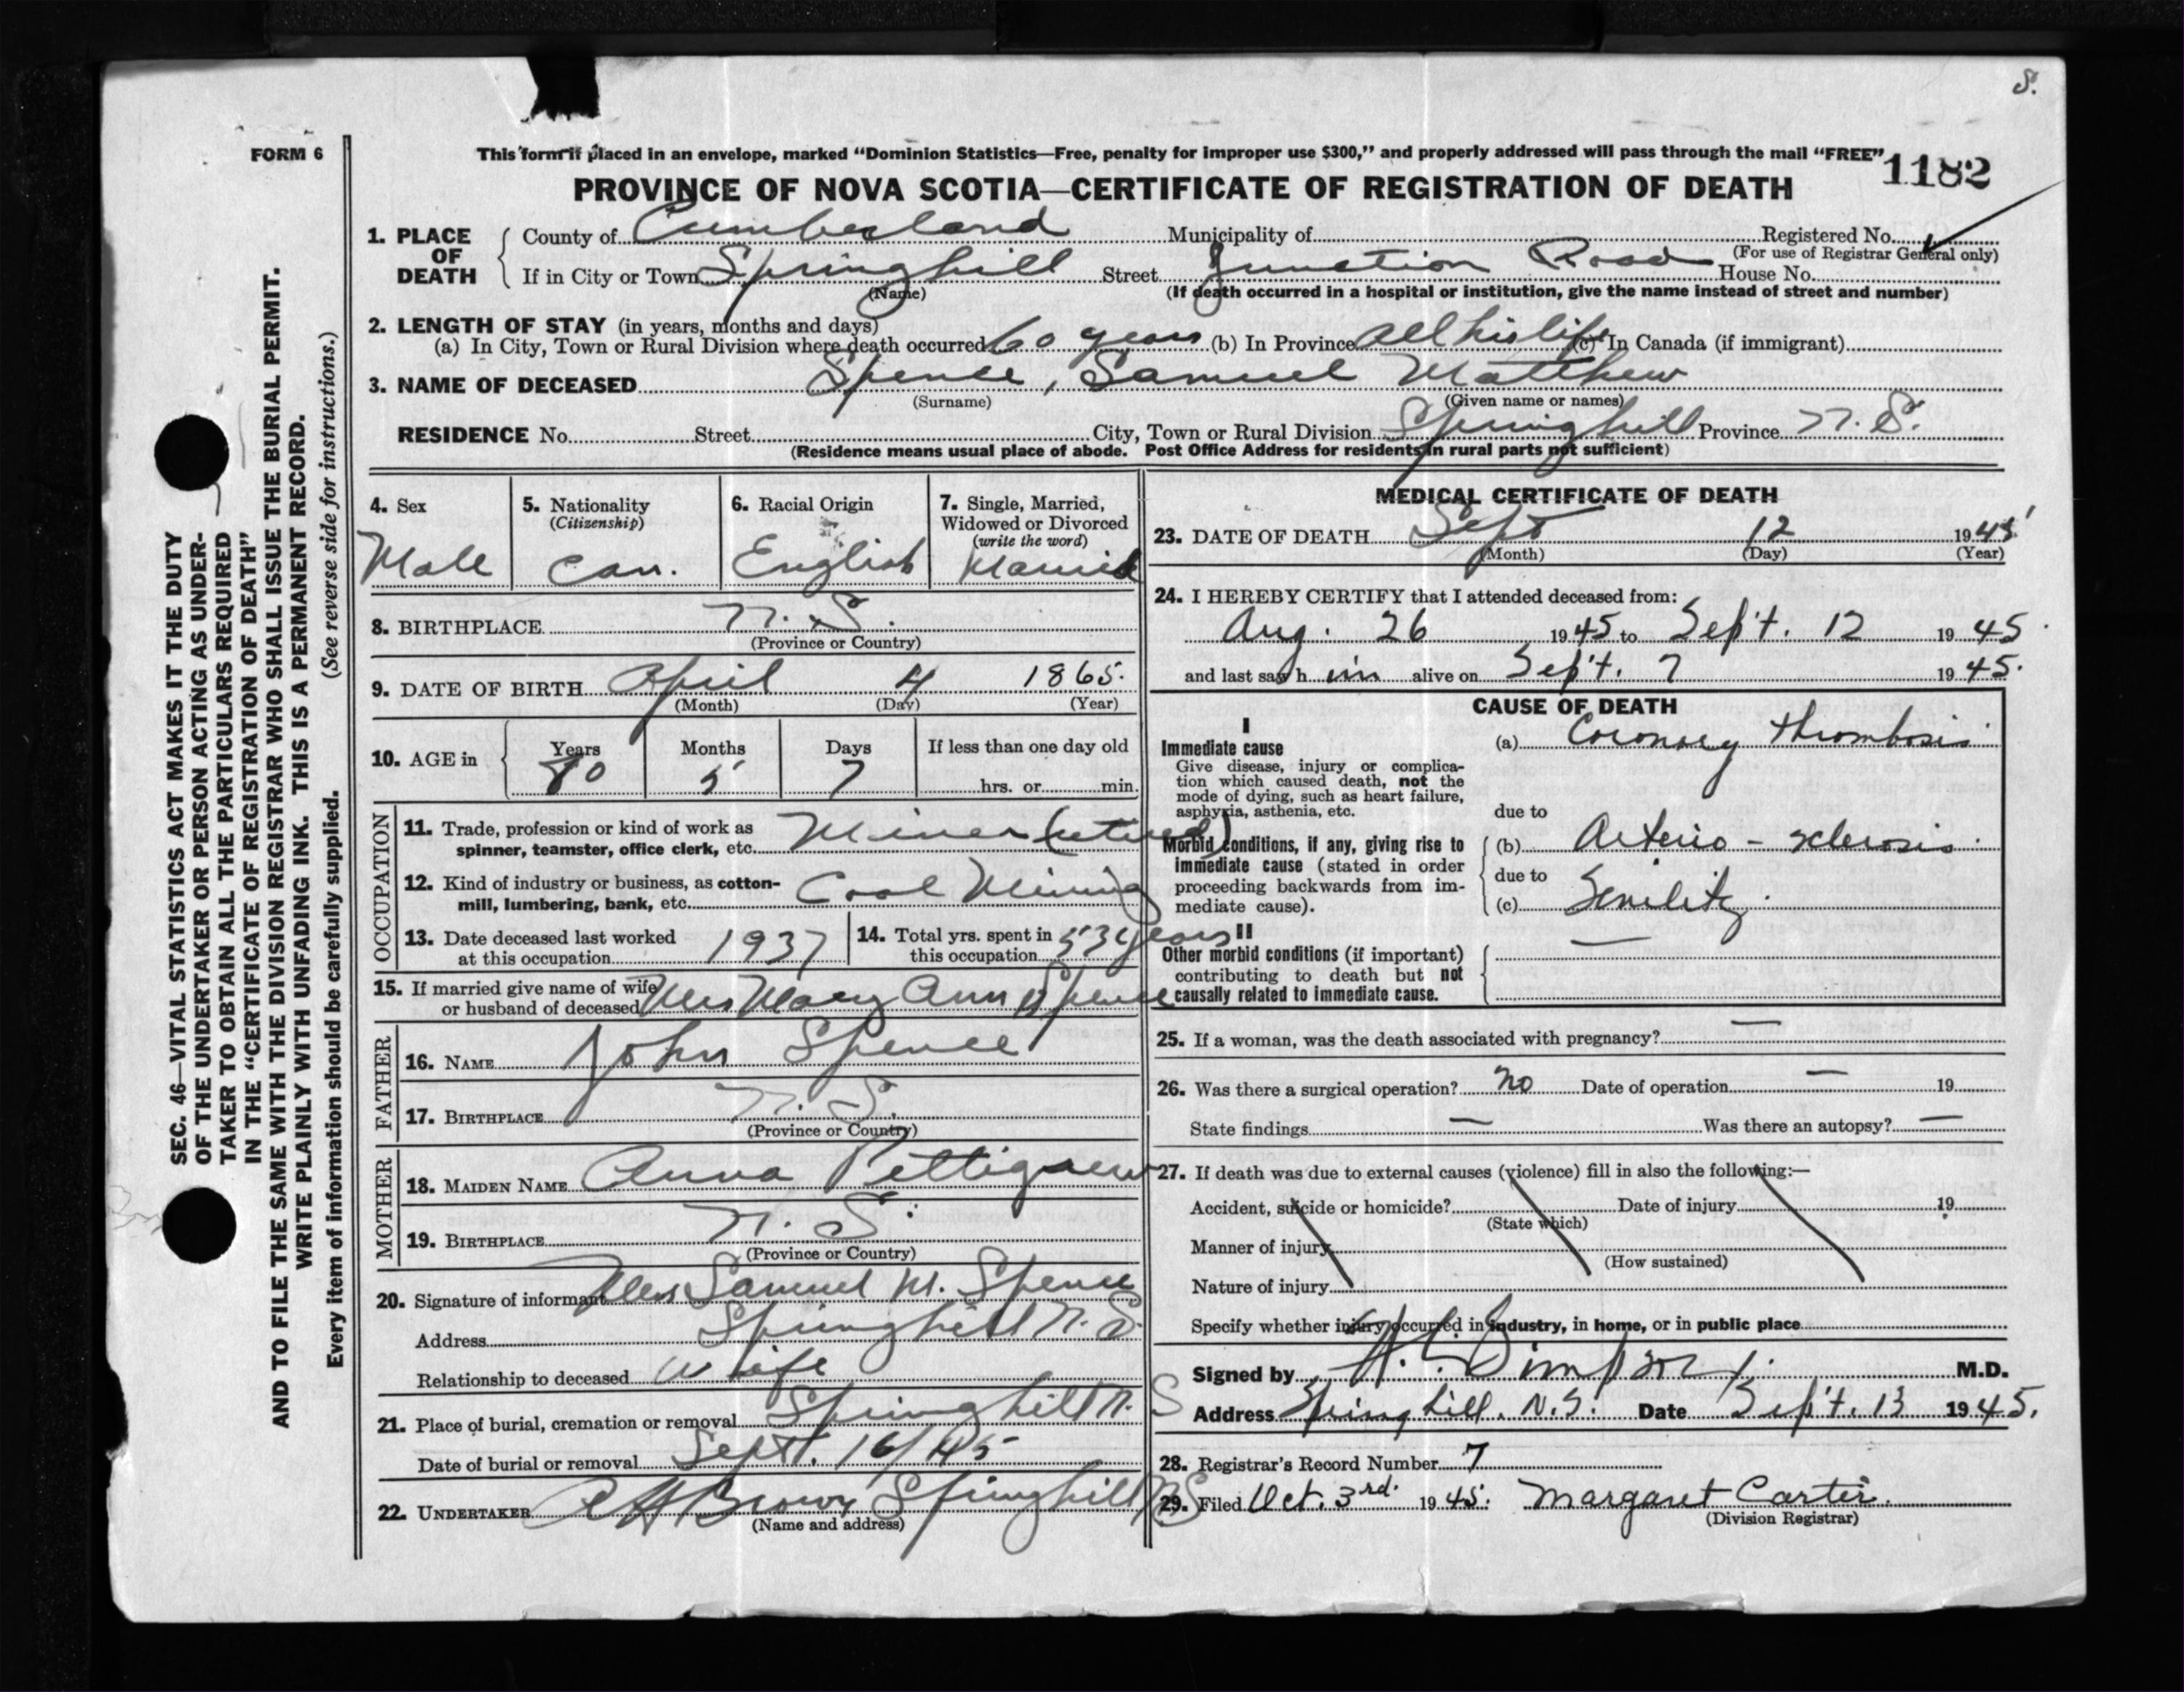 S.
FORM 6
This form if placed in an envelope, marked “Dominion Statistics—Free, penalty for improper use $300,” and properly addressed will pass through the mail “FREE”
1182
PROVINCE OF NOVA SCOTIA—CERTIFICATE OF REGISTRATION OF DEATH
1. PLACE OF DEATH
County of Cumberland Municipality of Registered No.
(For use of Registrar General only)
If in City or Town Springhill Street Junction Road House No.
(Name) (If death occurred in a hospital or institution, give the name instead of street and number)
2. LENGTH OF STAY (in years, months and days)
(a) In City, Town or Rural Division where death occurred 60 years (b) In Province all his life (c) In Canada (if immigrant)
3. NAME OF DECEASED Spence, Samuel Matthew
(Surname) (Given name or names)
RESIDENCE No. Street City, Town or Rural Division Springhill Province N.S.
(Residence means usual place of abode. Post Office Address for residents in rural parts not sufficient)
4. Sex 5. Nationality 6. Racial Origin 7. Single, Married,
(Citizenship) Widowed or Divorced
(write the word)
Male Can. English Married
8. BIRTHPLACE N.S.
(Province or Country)
9. DATE OF BIRTH April 4 1865.
(Month) (Day) (Year)
10. AGE in Years Months Days If less than one day old
80 5 7 hrs. or min.
OCCUPATION
11. Trade, profession or kind of work as
spinner, teamster, office clerk, etc. Miner (retired)
12. Kind of industry or business, as cotton-
mill, lumbering, bank, etc. Coal Mining
13. Date deceased last worked
at this occupation 1937
14. Total yrs. spent in
this occupation 53 years
15. If married give name of wife
or husband of deceased Mrs Mary Ann Spence
FATHER
16. NAME John Spence
17. BIRTHPLACE N.S.
(Province or Country)
MOTHER
18. MAIDEN NAME Anna Pettigrew
19. BIRTHPLACE N.S.
(Province or Country)
20. Signature of informant Mrs Samuel M. Spence
Address Springhill N.S.
Relationship to deceased wife
21. Place of burial, cremation or removal Springhill N.S
Date of burial or removal Sept. 16/45
22. UNDERTAKER A H Brown Springhill NS
(Name and address)
MEDICAL CERTIFICATE OF DEATH
23. DATE OF DEATH Sept 12 1945
(Month) (Day) (Year)
24. I HEREBY CERTIFY that I attended deceased from:
Aug. 26 1945 to Sep't. 12 1945
and last saw him alive on Sep't. 7 1945.
CAUSE OF DEATH
I
Immediate cause
Give disease, injury or complica-
tion which caused death, not the
mode of dying, such as heart failure,
asphyxia, asthenia, etc.
(a) Coronary thrombosis.
due to
Morbid conditions, if any, giving rise to
immediate cause (stated in order
proceeding backwards from im-
mediate cause).
(b) Arterio-sclerosis.
due to
(c) Senility.
II
Other morbid conditions (if important)
contributing to death but not
causally related to immediate cause.
—
25. If a woman, was the death associated with pregnancy? —
26. Was there a surgical operation? no Date of operation — 19
State findings — Was there an autopsy? —
27. If death was due to external causes (violence) fill in also the following:—
Accident, suicide or homicide? Date of injury 19
(State which)
Manner of injury
(How sustained)
Nature of injury
Specify whether injury occurred in industry, in home, or in public place
Signed by Simpson M.D.
Address Springhill, N.S. Date Sep't. 13 1945.
28. Registrar's Record Number 7
29. Filed Oct. 3rd. 1945. Margaret Carter.
(Division Registrar)
SEC. 46—VITAL STATISTICS ACT MAKES IT THE DUTY
OF THE UNDERTAKER OR PERSON ACTING AS UNDER-
TAKER TO OBTAIN ALL THE PARTICULARS REQUIRED
IN THE “CERTIFICATE OF REGISTRATION OF DEATH”
AND TO FILE THE SAME WITH THE DIVISION REGISTRAR WHO SHALL ISSUE THE BURIAL PERMIT.
WRITE PLAINLY WITH UNFADING INK. THIS IS A PERMANENT RECORD.
Every item of information should be carefully supplied. (See reverse side for instructions.)